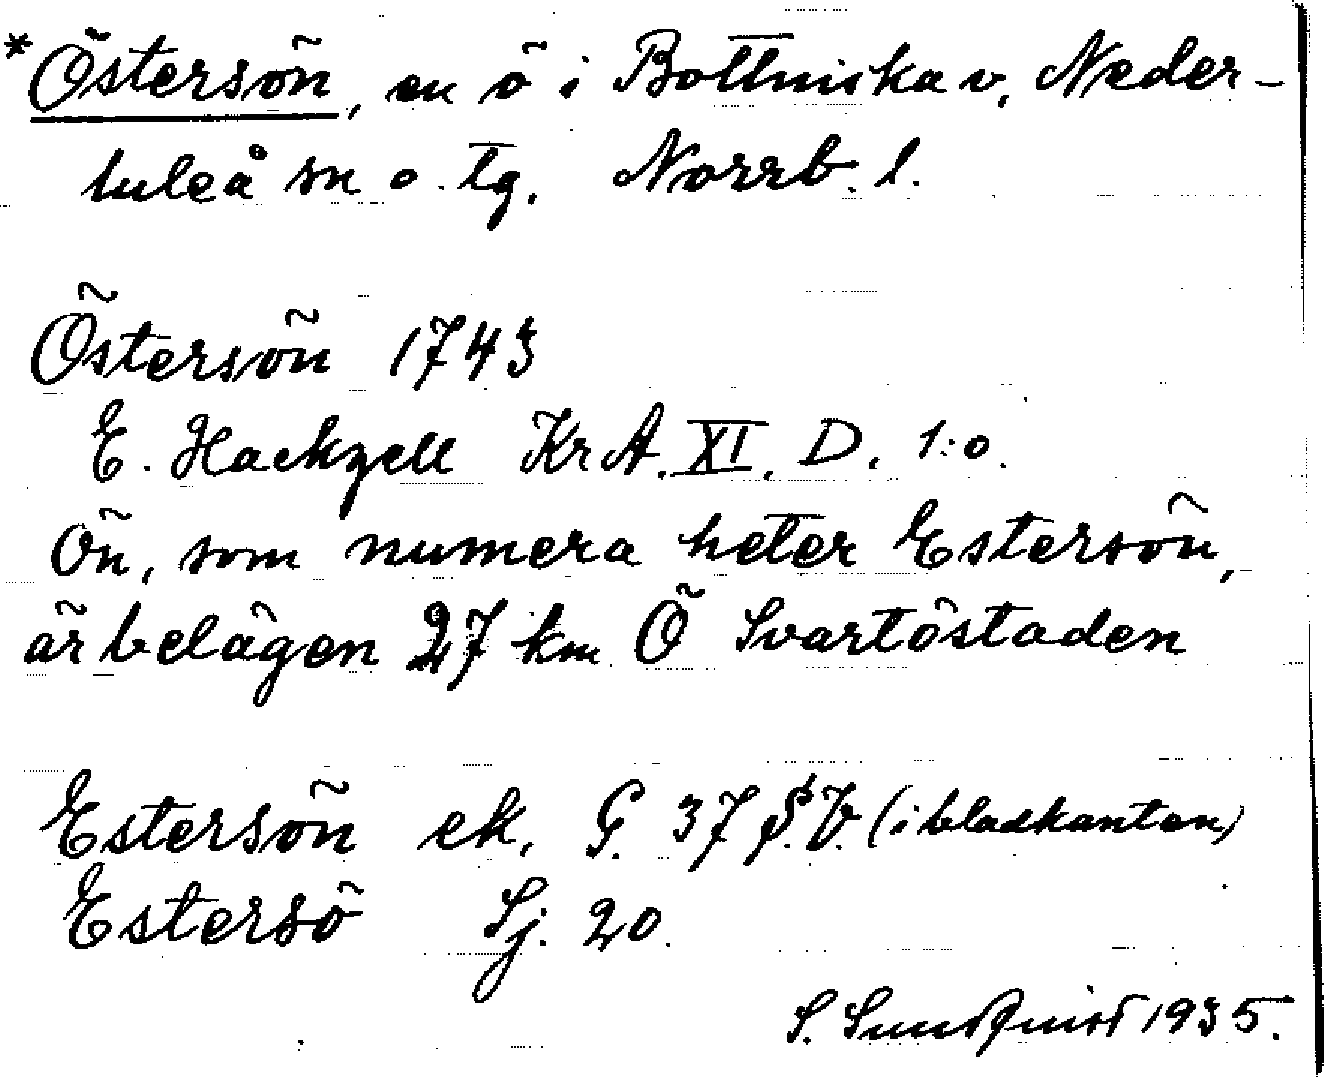 *Östersön, en ö i Bottniska v, Neder-
luleå sn o. tg. Norrb. l.
Östersön 1743
E. Hackzell KrA. XI. D. 1:o.
Ön, som numera heter Estersön,
är belägen 27 km Ö Svartöstaden
Estersön ek. G. 37 S.V. (i bladkanten)
Estersö Sj. 20.
S. Sundquist 1935.